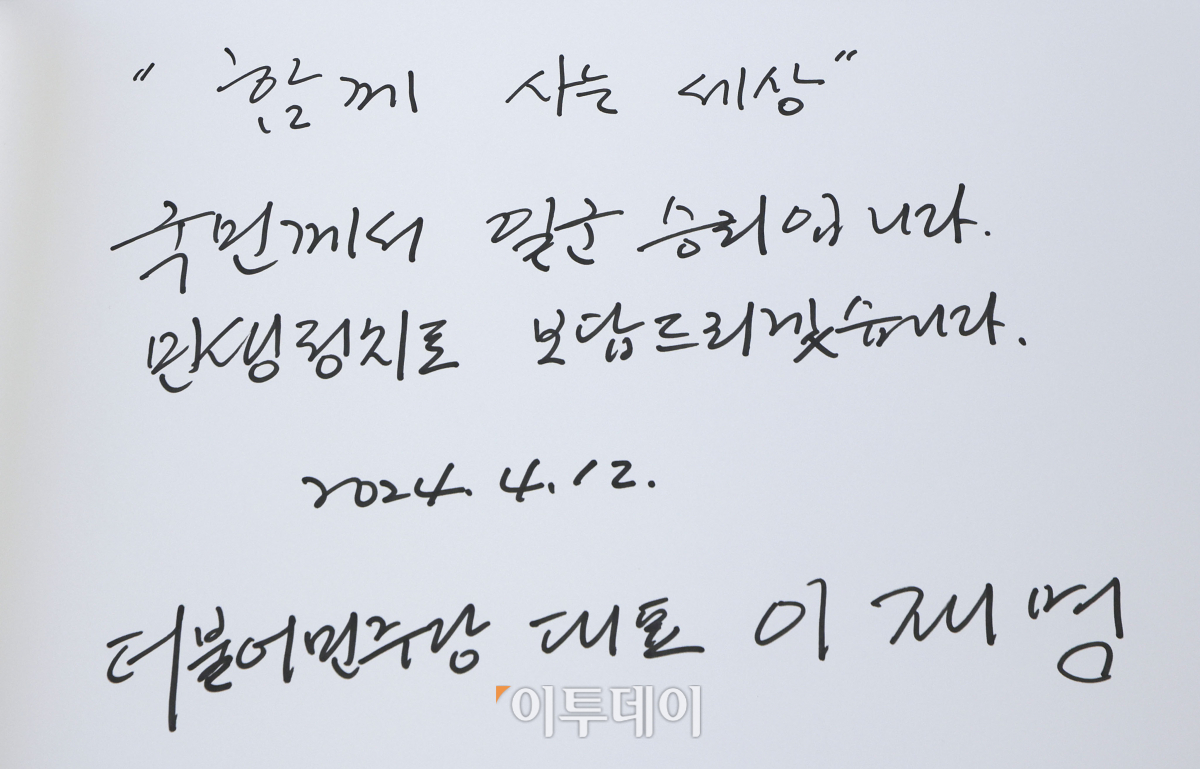 "함께 사는 세상"
국민께서 일군 승리입니다.
민생정치로 보답드리겠습니다.
2024. 4. 12.
더불어민주당 대표 이재명
이투데이